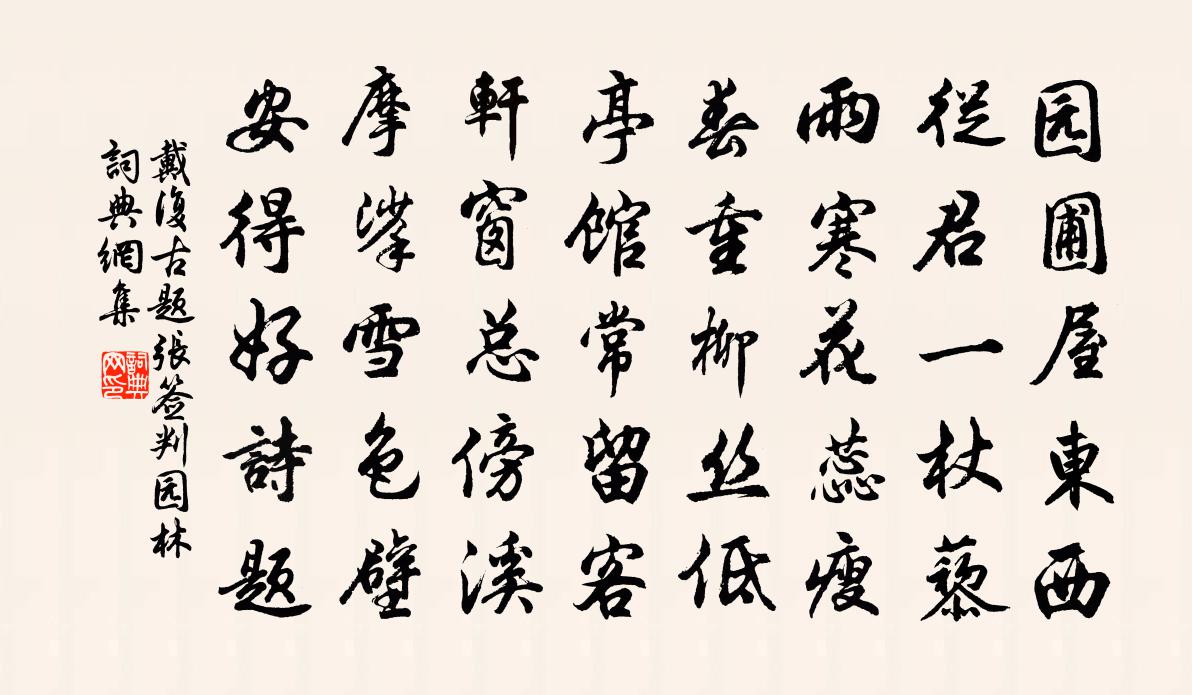 园圃屋東西
從君一杖藜
雨寒花蕊瘦
春重柳丝低
亭館常留客
軒窗总傍溪
摩挲雪色壁
安得好詩题
戴復古题張签判园林
詞典網集
詞典网印